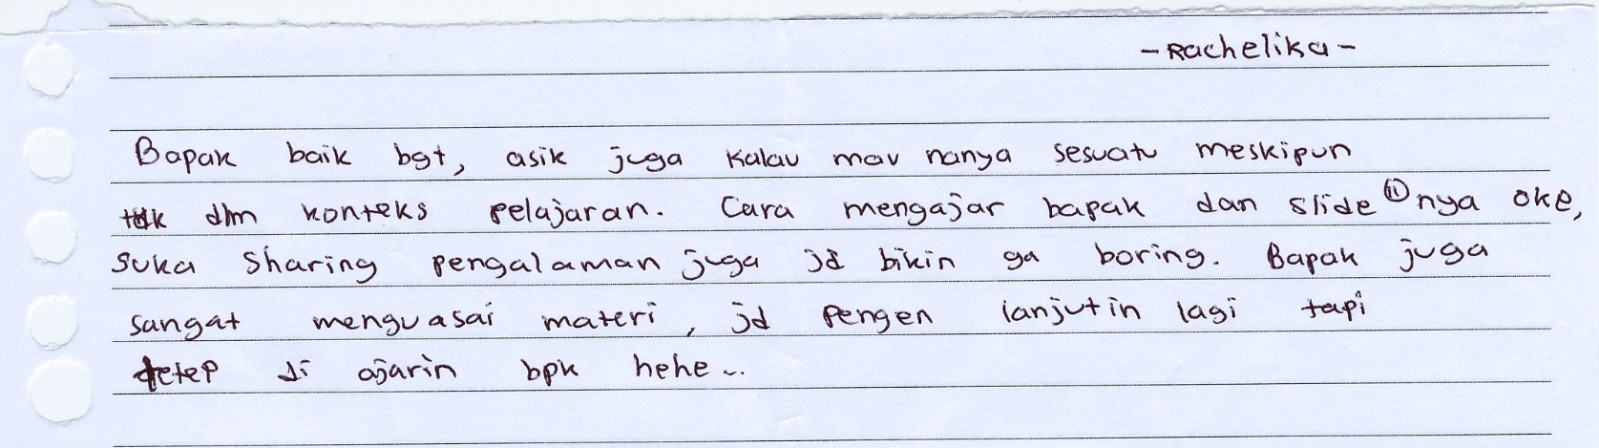 - Rachelika -
Bapak baik bgt, asik juga kalau mau nanya sesuatu meskipun
tdk dlm konteks pelajaran. Cara mengajar bapak dan slide" nya oke,
suka sharing pengalaman juga jd bikin ga boring. Bapak juga
sangat menguasai materi, jd pengen lanjutin lagi tapi
tetep di ajarin bpk hehe...